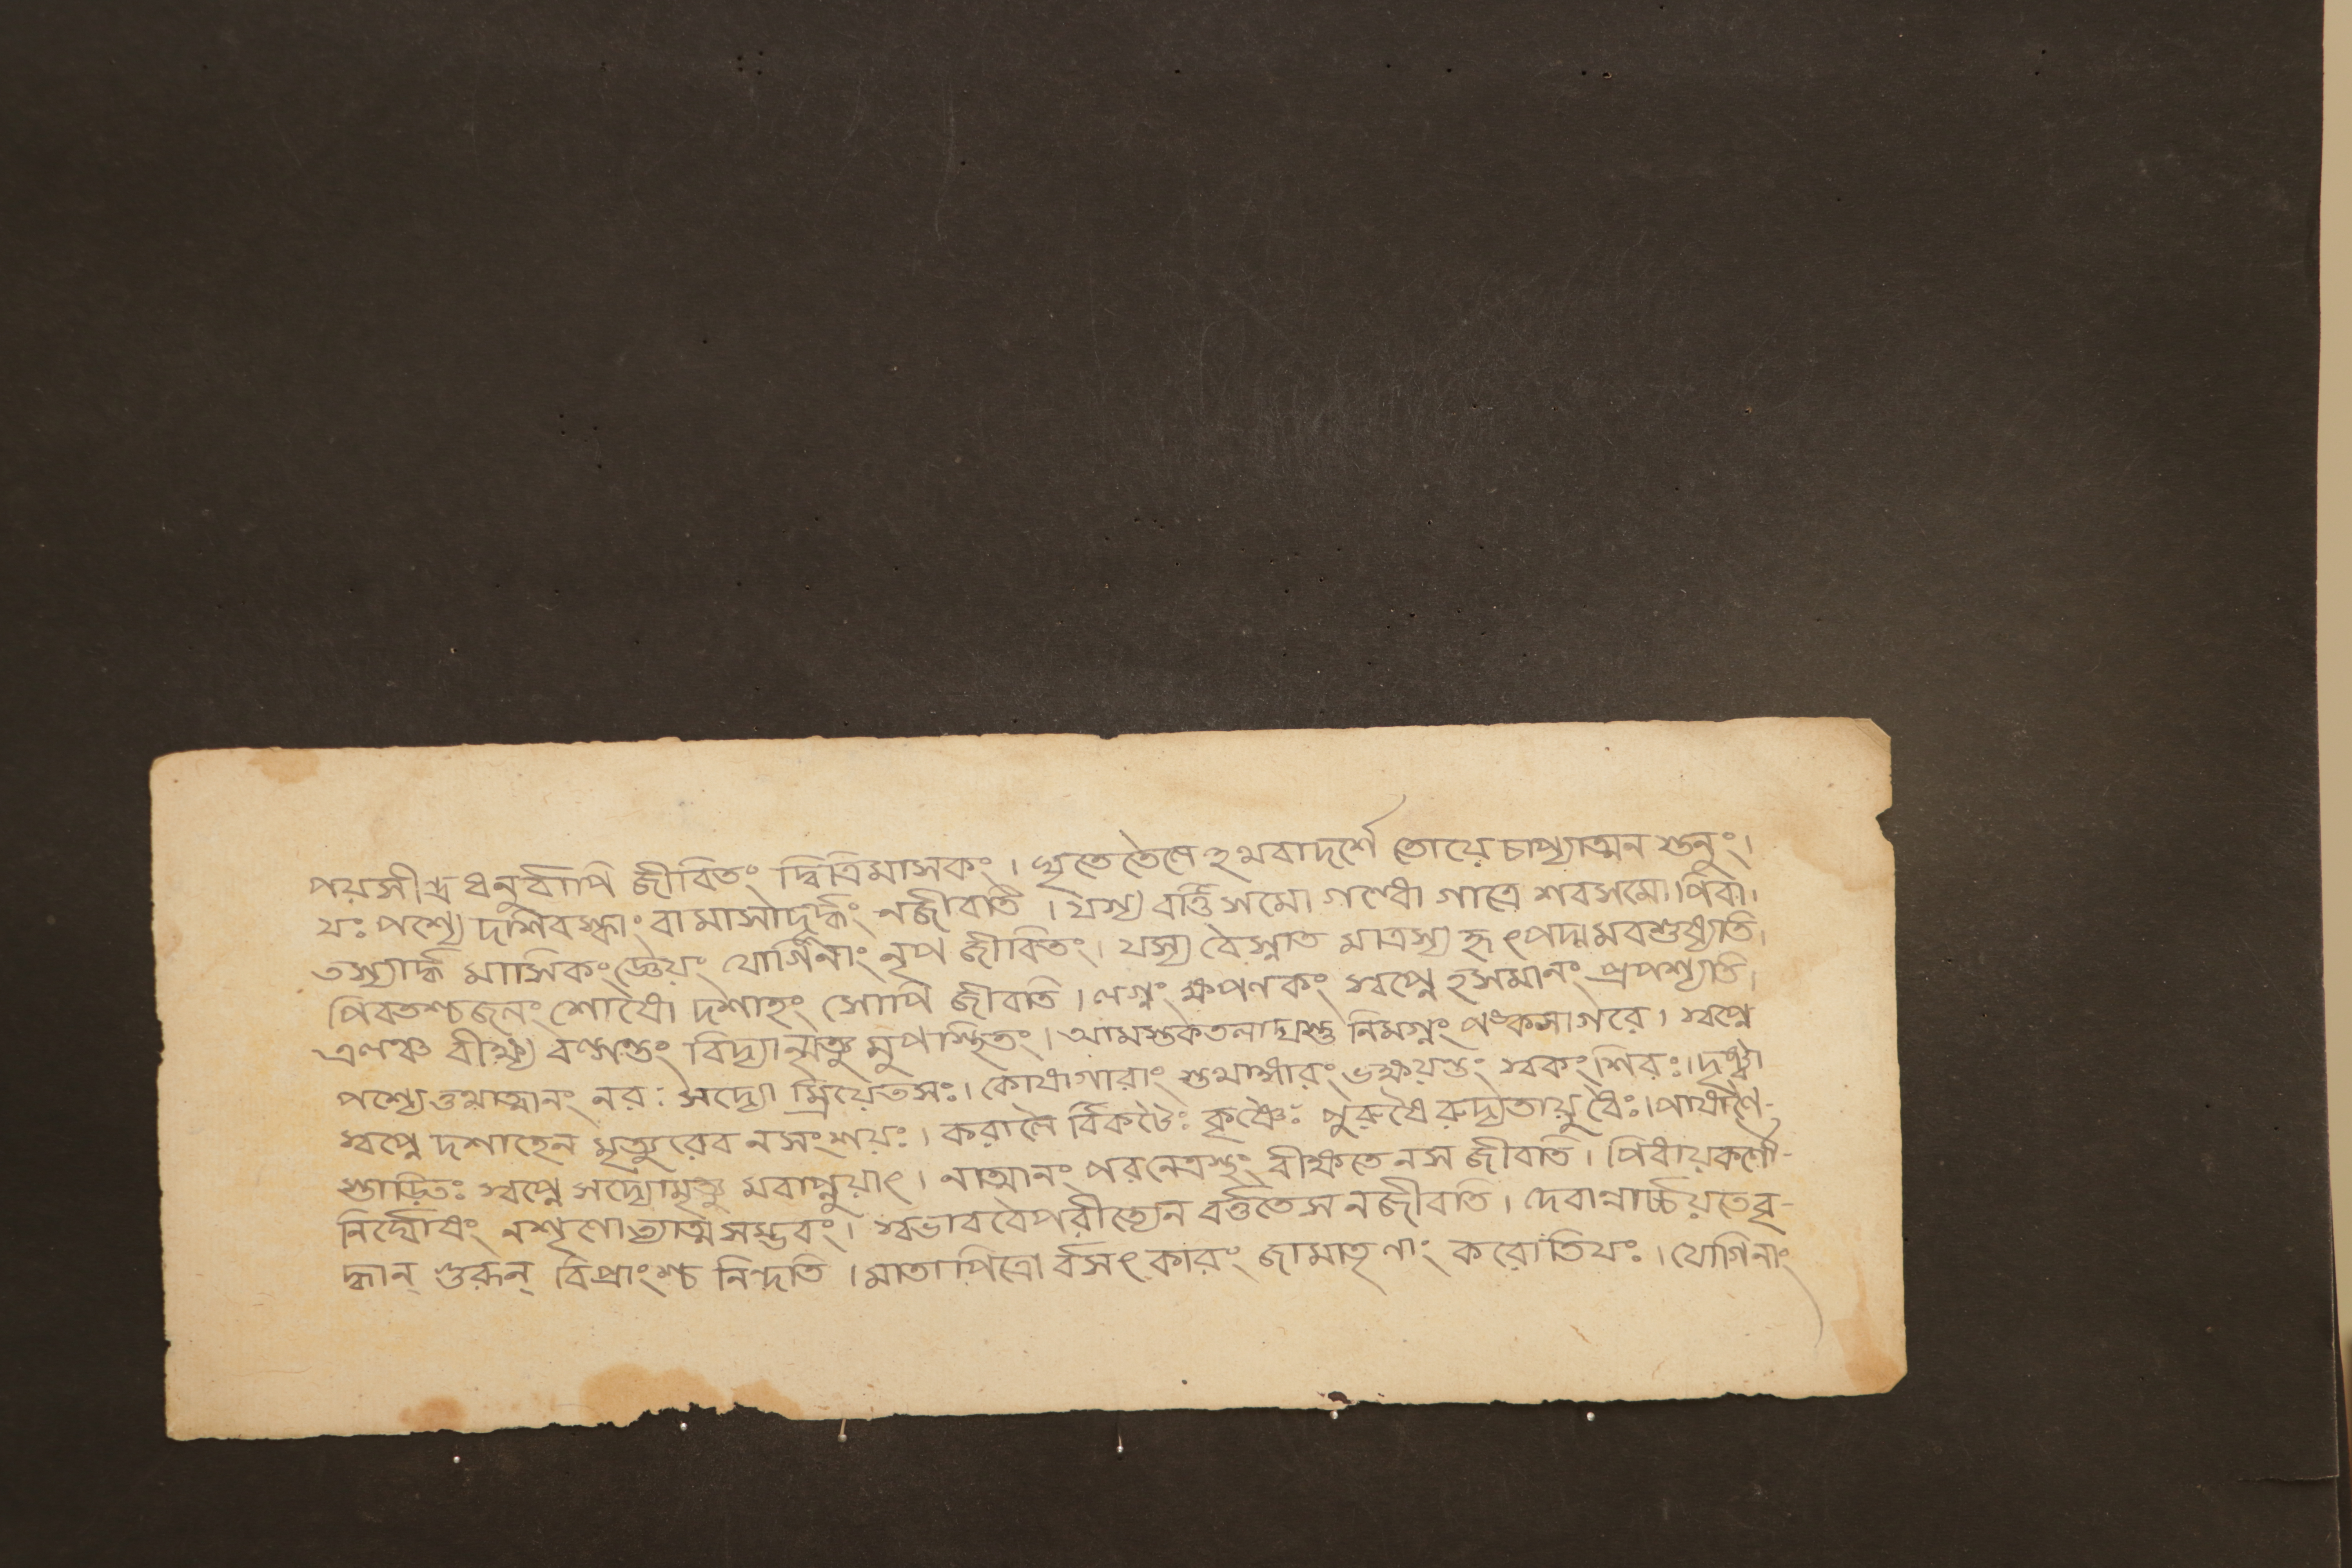 পয়সীন্দ্রধনুর্ব্বাপি জীবিতং দ্বিত্রিমাসকং । ঘৃতে তৈলেঽথবাদর্শে তোয়ে চাপ্যাত্মন স্তনুং ।
যঃ পশ্যে দশিবস্কাং বা মাসাদূর্দ্ধং নজীবতি । যস্য বর্ত্তিসমো গন্ধো গাত্রে শবসমোপিবা ।
তস্যার্দ্ধ মাসিকংজ্ঞেয়ং যোগিনাং নৃপ জীবিতং । যস্য বৈস্নাত মাত্রস্য হৃৎপদ্মমবশুষ্যতি ।
পিবতশ্চজলং শোষো দশাহং সোপি জীবতি । নগ্নং ক্ষপণকং স্বপ্নে হসমানং প্রপশ্যতি ।
এনঞ্চ বীক্ষ্য বল্গন্তং বিদ্যান্মৃত্যু মুপস্থিতং । আমস্তকতলাদ্যস্তু নিমগ্নং পঙ্কসাগরে । স্বপ্নে
পশ্যেত্তথাত্মানং নরঃ সদ্যো ম্রিয়েতসঃ । কেশাগারাং স্তথাঙ্গারং ভক্ষয়ন্তং স্বকং শিরঃ । দৃষ্ট্বা
স্বপ্নে দশাহেন মৃত্যুরেব নসংশয়ঃ । করালৈ র্বিকটৈঃ কৃষ্ণৈঃ পুরুষৈ রুদ্যতায়ুধৈঃ । পাষাণৈ-
স্তাড়িতঃ স্বপ্নে সদ্যোমৃত্যু মবাপ্নুয়াৎ । নাত্মানং পরনেত্রস্থং বীক্ষতে নস জীবতি । পিধায়কর্ণৌ-
নির্ঘোষং নশৃণোত্যাত্মসম্ভবং । স্বভাববৈপরীত্যেন বর্ত্ততে স নজীবতি । দেবান্নার্চ্চয়তেবৃ-
দ্ধান্ গুরূন্ বিপ্রাংশ্চ নিন্দতি । মাতাপিত্রো র্বসৎকারং জামাতৃণাং করোতিযঃ । যোগিনাং